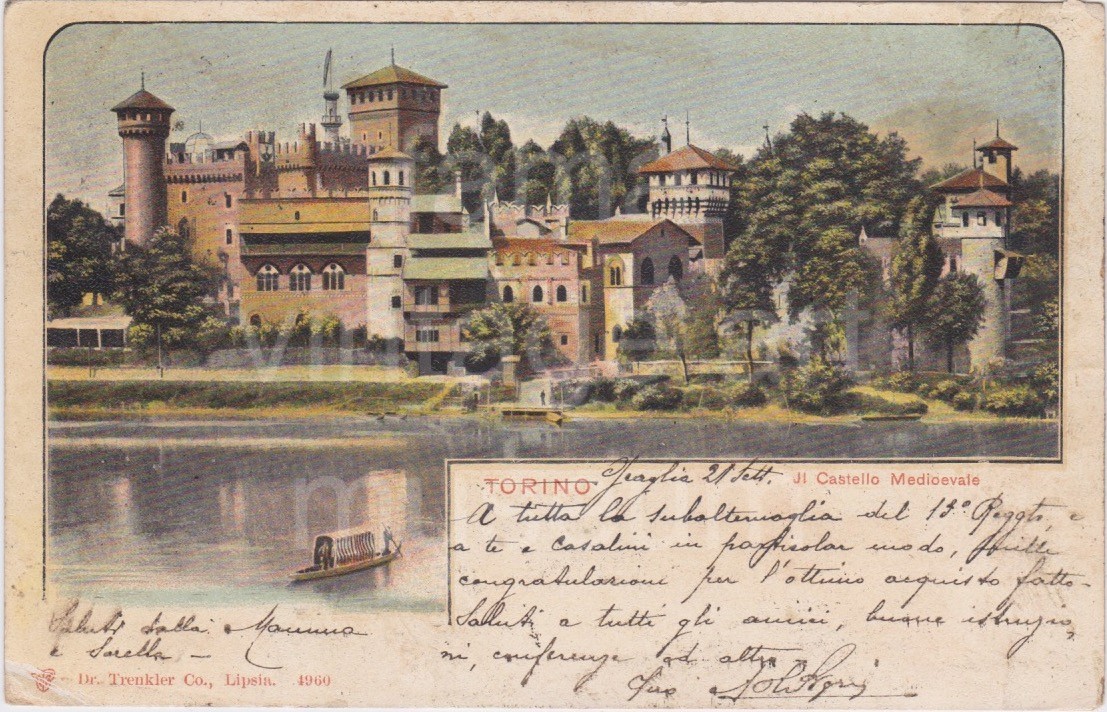 TORINO Graglia 21 Sett. Jl Castello Medioevale
A tutta la subalternaglia del 13º Reggto, e
a te e Casalini in particolar modo, mille
congratulazioni per l'ottimo acquisto fatto-
Saluti a tutti gli amici, buone istruzio,
ni, conferenze ed altro
Tuo
Saluti dalla Mamma
e Sorella -
Dr. Trenkler Co., Lipsia. 4960
vintage art